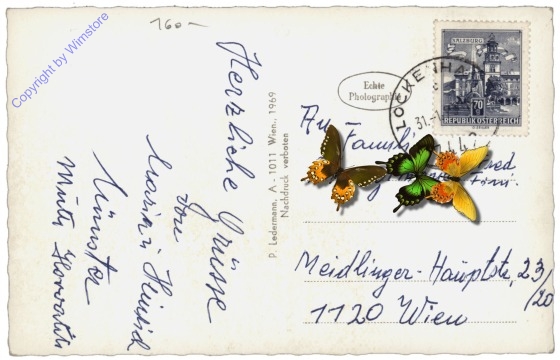 160.-
Copyright by Wimstore
Herzliche Grüsse
von
Maria + Heinrich
Münster
Mutti Horvath
P. Ledermann, A - 1011 Wien., 1969
Nachdruck verboten
Echte
Photographie
SALZBURG
70
REPUBLIK ÖSTERREICH
LOCKENHA
31.-1
An Familie
Meidlinger-Hauptstr, 23/20
1120 Wien